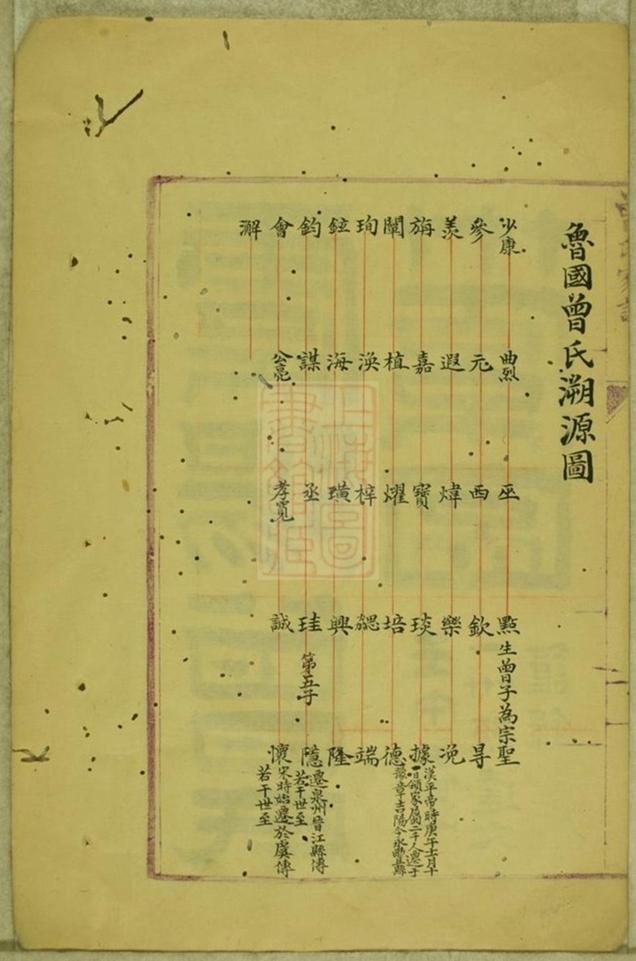 魯國曾氏溯源圖
少康 曲烈 巫 點 生曾子為宗聖
參 元 西 欽 㝵
羨 遐 煒 樂 浼
旃 嘉 寶 琰 據 漢平帝時庚午十一月十
一日領家屬二千人遷于
豫章吉陽今永豐縣
闡 植 燿 培 德
珣 渙 梓 勰 端
鉉 海 璜 興 隆
鈞 謀 丞 珪 第五子 隱 遷泉州晉江縣傳
若干世至
會 公亮 孝寬 誠 懷 宋時始遷於虞傳
若干世至
澥
上海圖書館藏